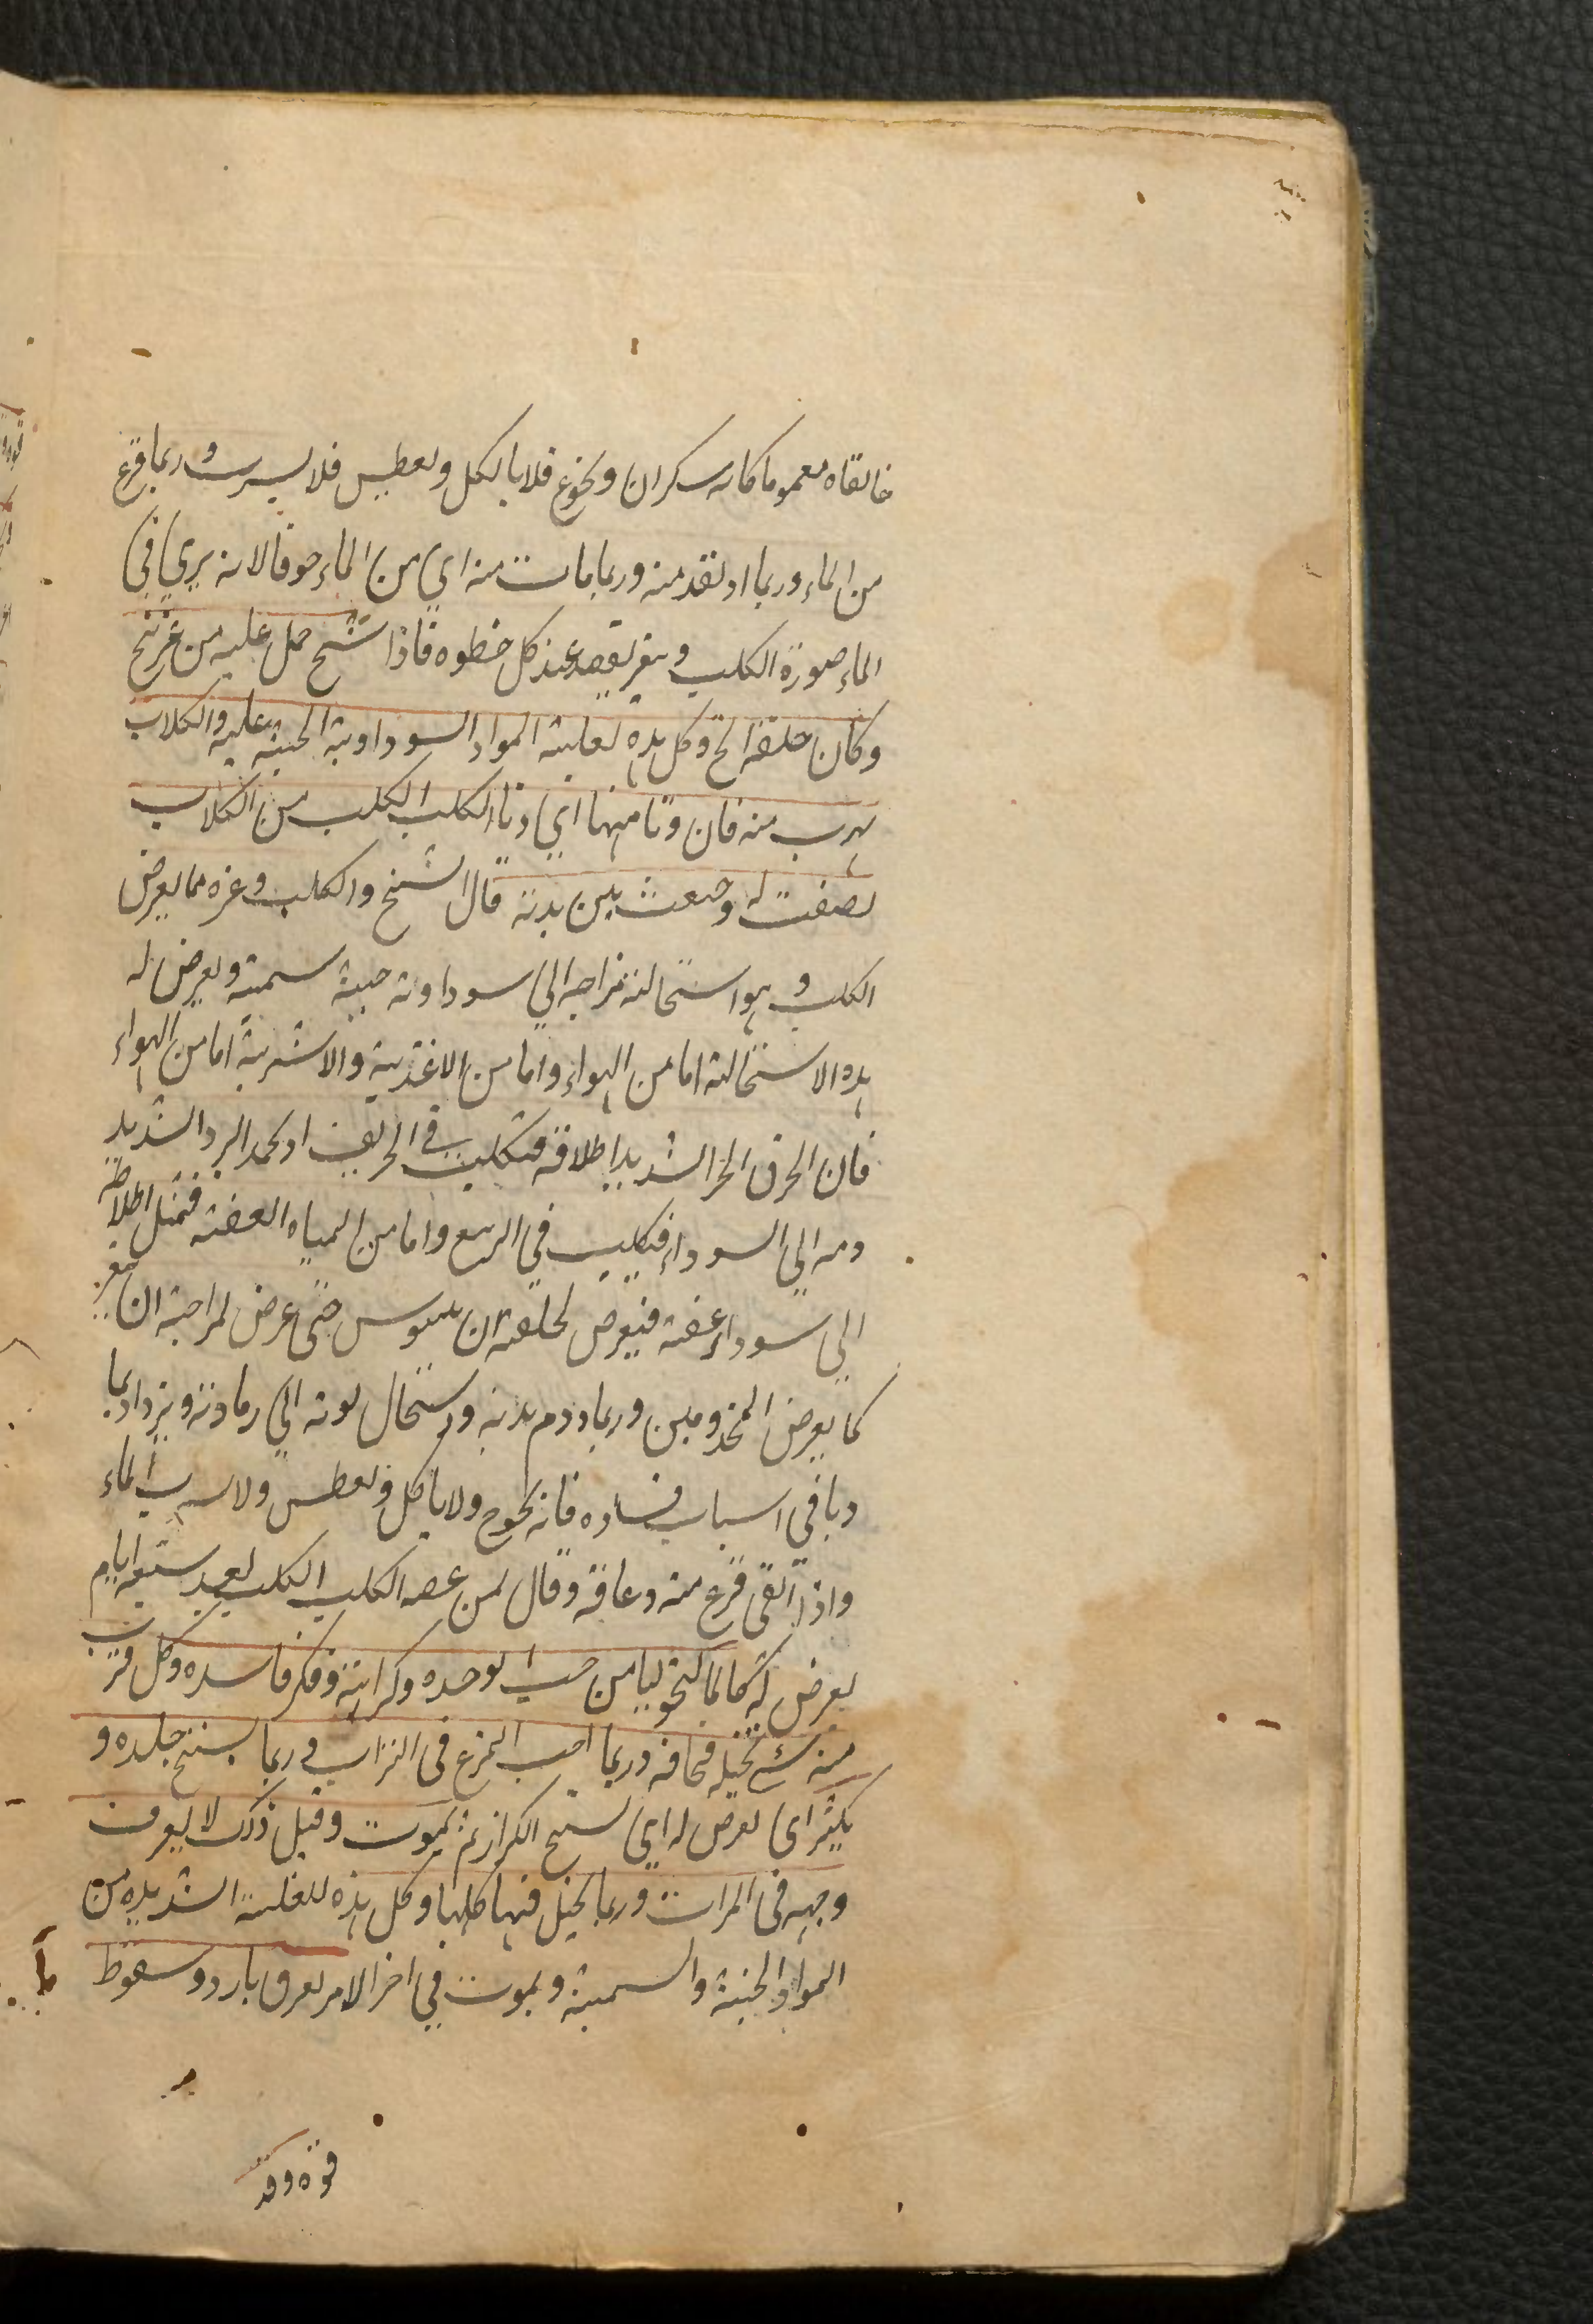 خانقاه مغموما كانه سكران ويجوع فلا ياكل ويعطش فلا يشرب وربما فزع
من الماء وربما ارتعد منه وربما مات منه اي من الماء خوفا لانه يري في
الماء صورة الكلب ويتغير بقصد عند كل خطوه فاذا شبح حمل عليه من غير نبح
وكان حلقه الخ وكل هذه لغلبة المواد السوداوية الخبيثة عليه والكلاب
يهرب منه فان دنا منها اي دنا الكلب الكلب من الكلاب
بصبصت له وخشعت بين يديه قال الشيخ والكلب وغيره مما يعرض
الكلب وهو استحالة مزاجه الي سوداوية خبيثة سمية ويعرض له
هذه الاستحالة اما من الهواء واما من الاغذية والاشربة اما من الهواء
فان الحرق الحر الشديد اخلاطه فتكلب في الخريف او يجمد البرد الشديد
دمه الي السوداء فيكلب في الربيع واما من المياه العفنة فتميل اخلاطه
الي سوداء عفنة فيعرض لخلقته ان حتي عرض لمزاجه ان تغير
كما يعرض المجذومين وربما ورم بدنه واستحال لونه الي رمادية ويزداد بما
وباقي اسباب فساده فانه يجوع ولا ياكل ويعطش ولا يشرب الماء
واذا القي فزع منه وعافه وقال لمن عضه الكلب الكلب بعد سبعة ايام
يعرض له كالمالنخوليا من حب الوحده وكراهية وفكر فاسده وكل قرب
منه شئ تخيله فخافه وربما احب التمرغ في التراب وربما يتشنج جلده و
يكثر اي يعرض له اي تشنج الكزاز ثم يموت وقبل ذلك لا يعرف
وجهه في المرات وربما تخيل فيها كلبا وكل هذه للغلبة الشديده من
المواد الخبيثة والسمية ويموت في اخر الامر بعرق بارد وسقوط
قوه وقد